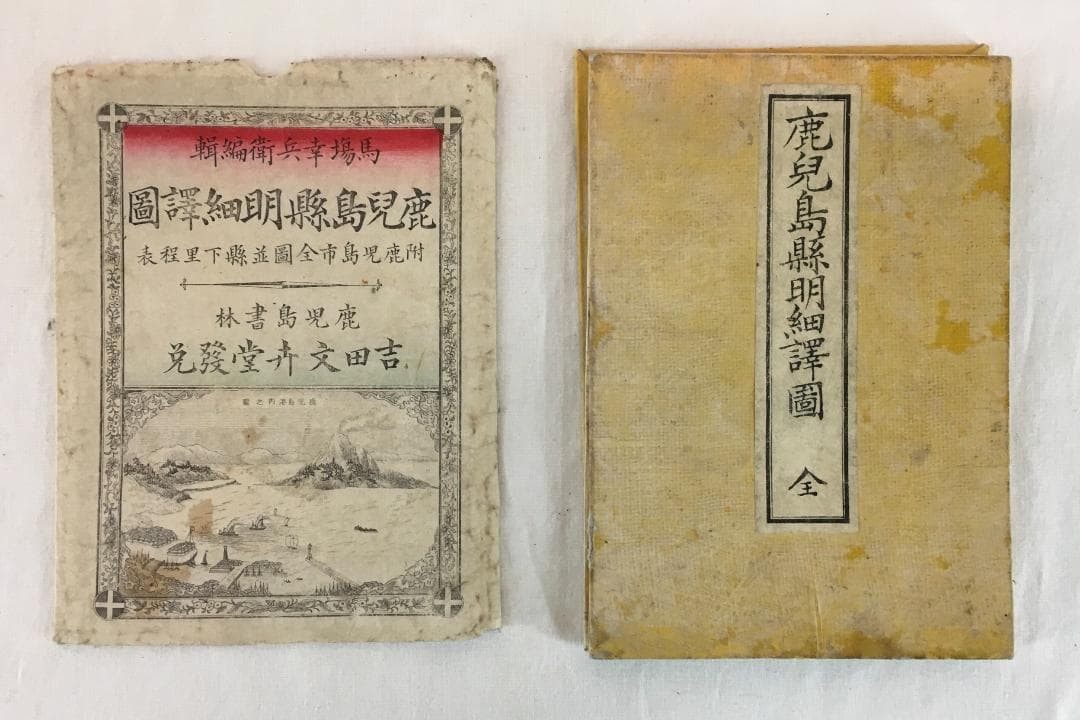 馬場幸兵衛編輯
鹿兒島縣明細譯圖
附鹿児島市全圖並縣下里程表
鹿児島書林
吉田文卉堂發兌
鹿児島港内之圖
鹿兒島縣明細譯圖 全